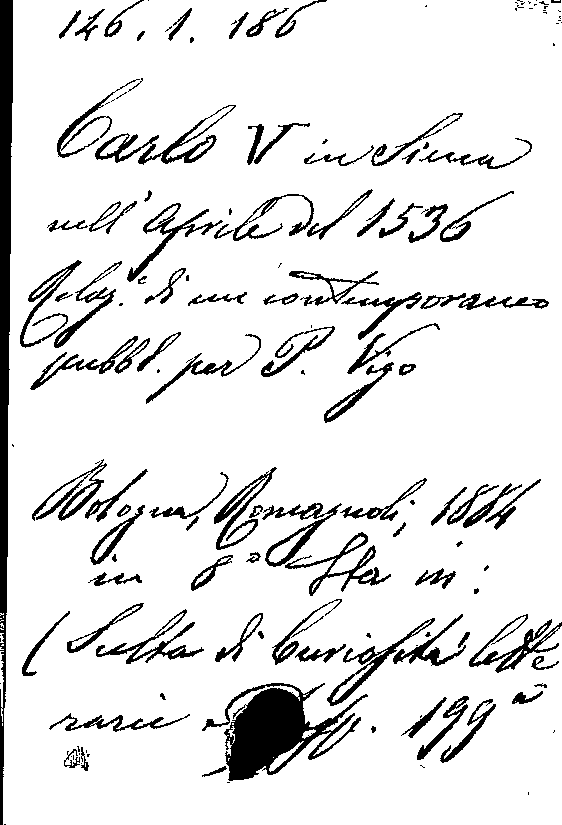 126. 1. 186
Carlo V in Siena
nell' Aprile del 1536
Relaz.e di un contemporaneo
pubbl. per P. Vigo
Bologna, Romagnoli, 1884
in 8° Sta in:
(Scelta di Curiosità lette
rarie 199ª